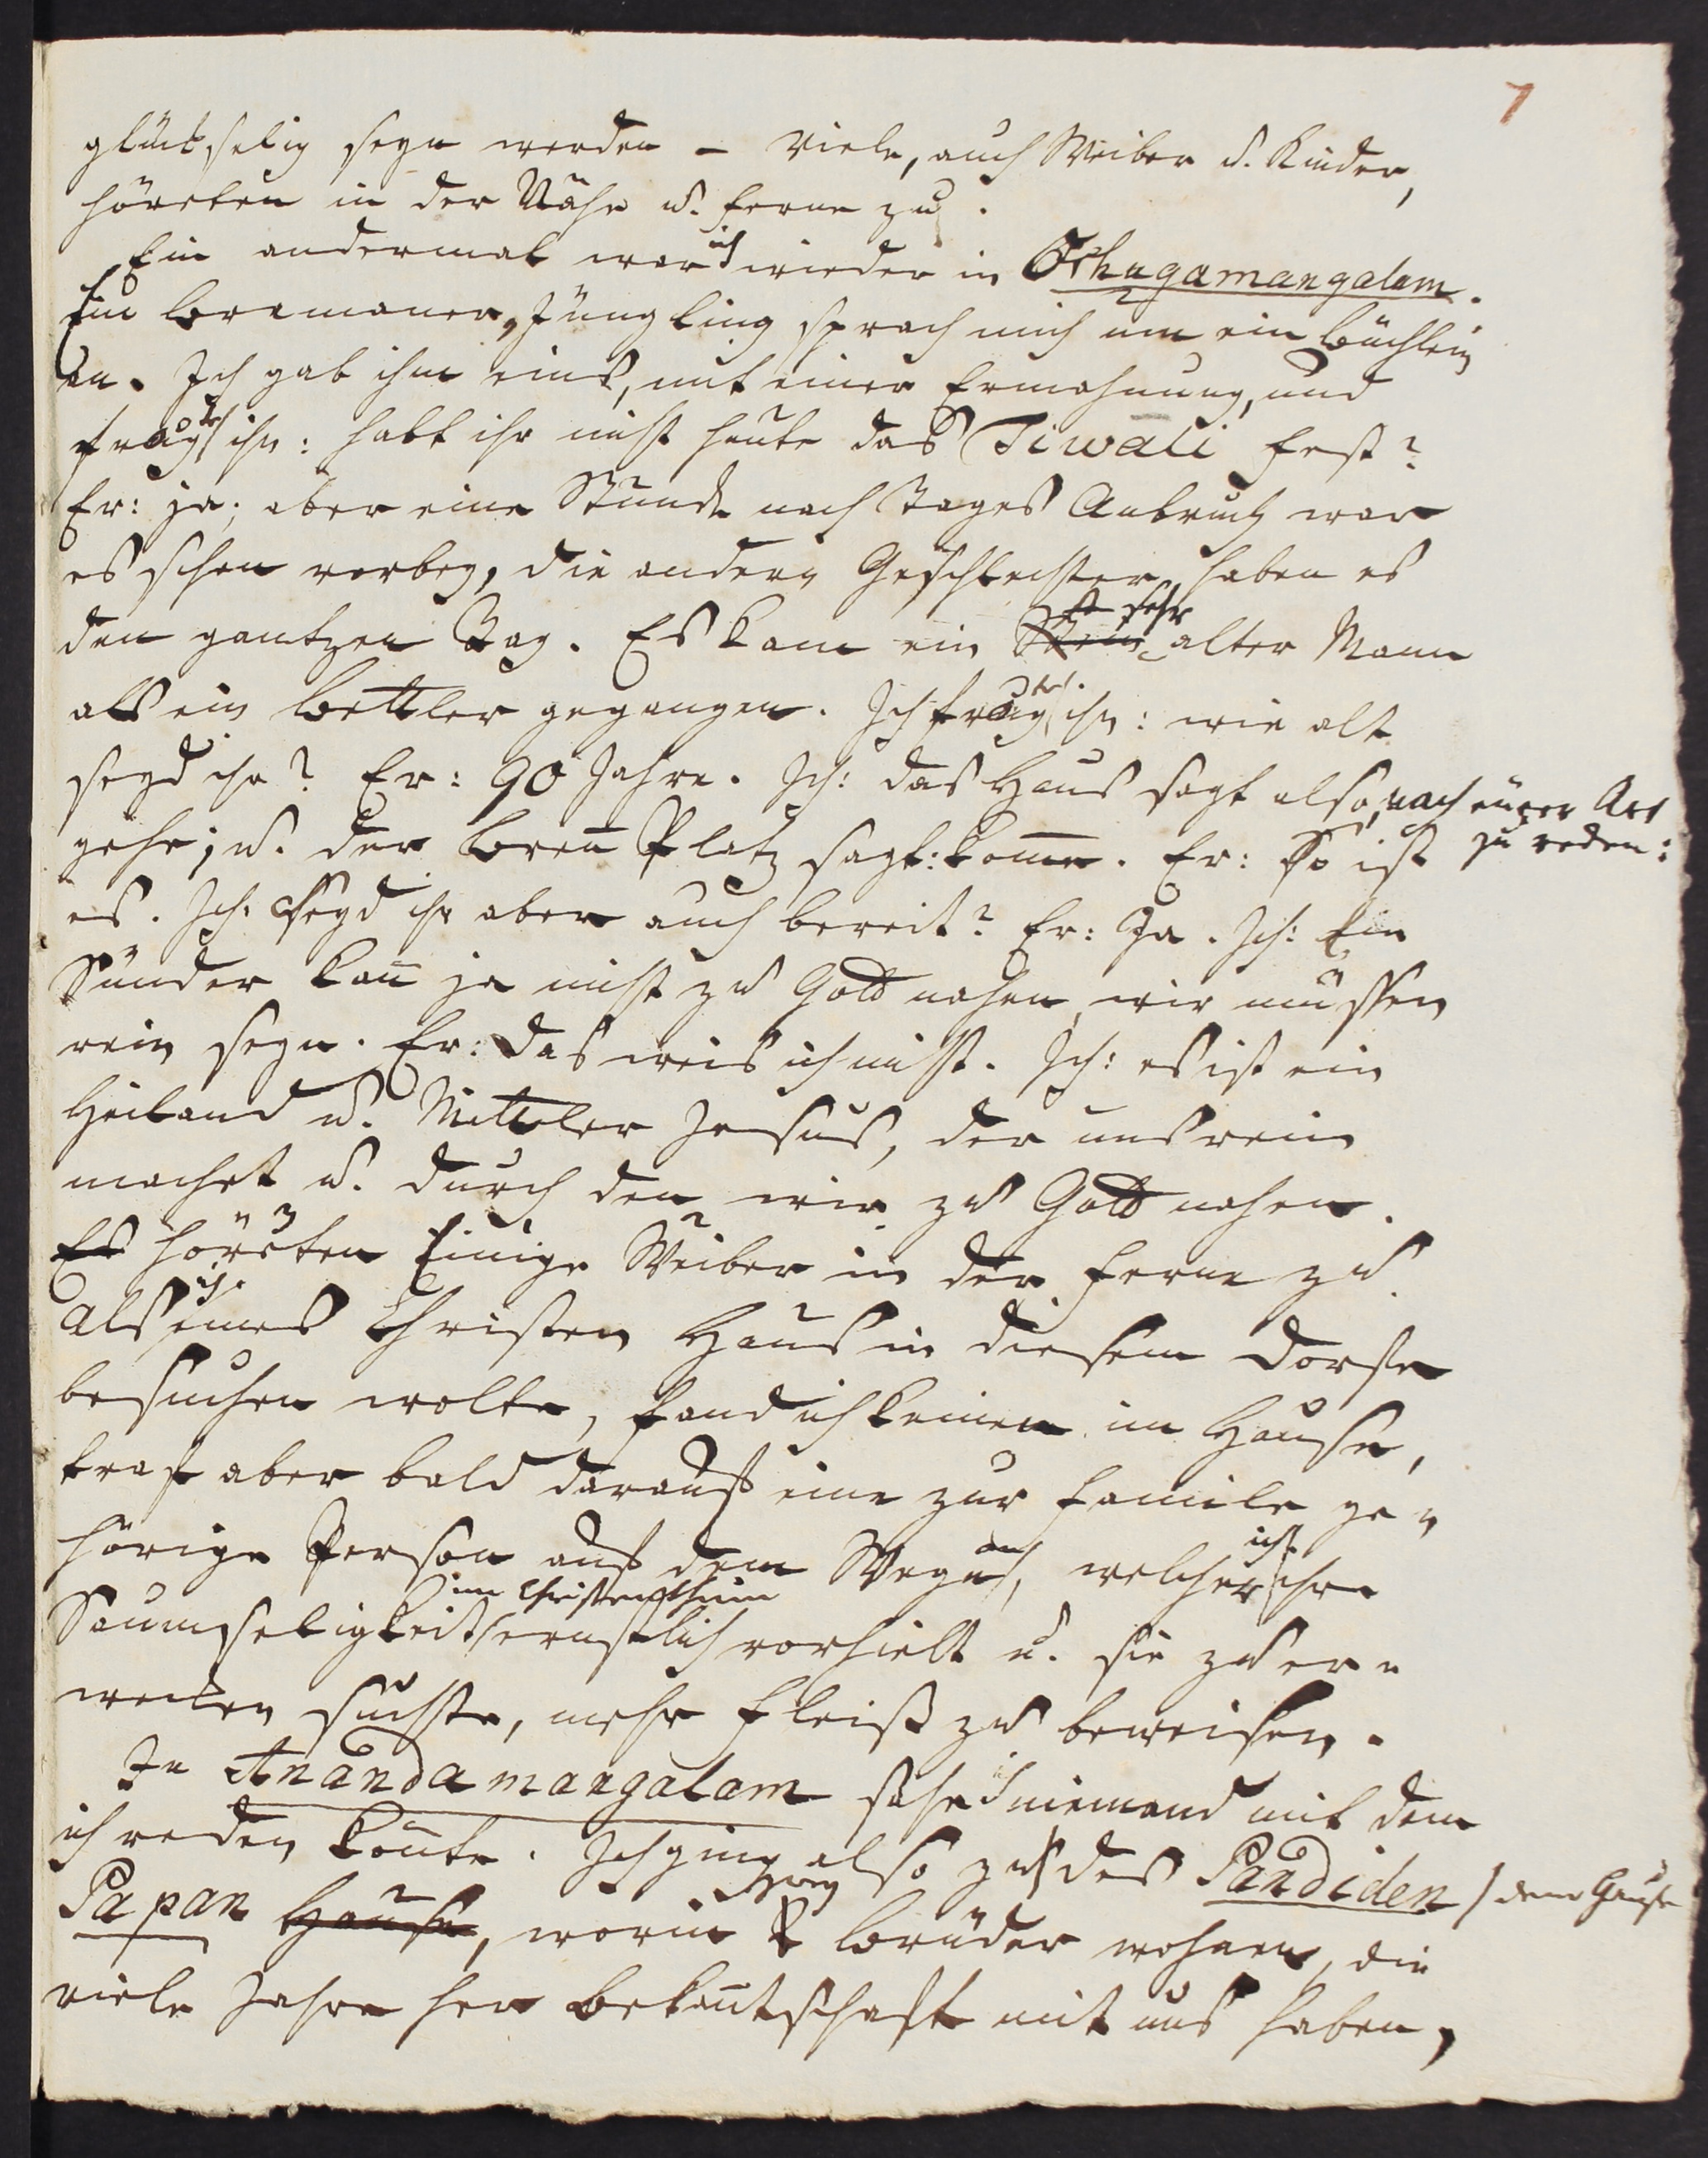 7
glückselig seyn werden – Viele, auch Weiber u. Kinder,
höreten in der Nähe u. ferne zu.
Ein andermal war ich wieder in Othugamangalam.
Ein Bramaner, Jüngling sprach mich um ein Büchlein
an. Ich gab ihm eins, mit einer Ermahnung, und
fragte ihn: habt ihr nicht heute das Tiwali fest?
Er: ja; aber eine Stunde nach Tages Anbruch war
es schon vorbey, die andern Geschlechter haben es
den gantzen Tag. Es kam ein sehr alter Mann
als ein Bettler gegangen. Ich fragte ihn: wie alt
seyd ihr? Er: 90 Jahre. Ich: das Haus sagt also, nach eurer Art
zu reden:
gehe; u. der Brenn Platz sagt: komme. Er: So ist
es. Ich: Seyd ihr aber auch bereit? Er: Ja. Ich: Ein
Sünder kan ja nicht zu Gott nahen, wir müssen
rein seyn. Er: Das weis ich nicht. Ich: es ist ein
Heiland u. Mittler Jesus, der uns rein
machet u. durch den wir zu Gott nahen.
Es höreten Einige Weiber in der ferne zu.
Als ich eines Christen Haus in diesem Dorfe
besuchen wolte, fand ich keinen im Hause,
traf aber bald darauf eine zur Familie ge-
hörige Person auf dem Wege an, welcher ich ihre
Saumseligkeit im Christenthum ernstlich vorhielt u. sie zu er-
wecken suchte, mehr Fleiß zu beweisen.
In Anandamangalam sahe ich niemand mit dem
ich reden konte. Ich ging also zu des Pandiden dem Hause
Papan Hause, worin zwey Brüder wohnen, die
viele Jahre her Bekantschaft mit uns haben,